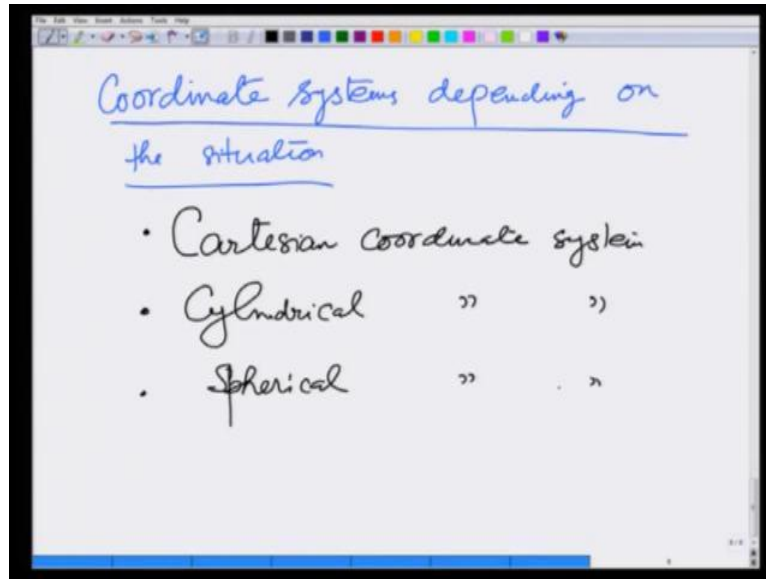 File Edit View Insert Actions Tools Help
Coordinate systems depending on
the situation
• Cartesian coordinate system
• Cylindrical " "
• Spherical " "